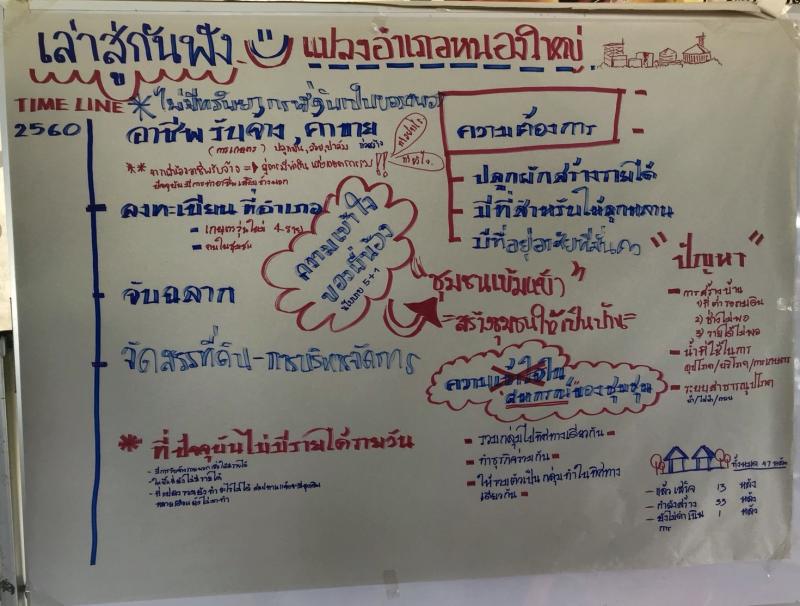 เล่าสู่กันฟัง
แปลงอำเภอหนองใหญ่
TIME LINE
2560
*ไม่มีทรัพยากรที่ดินเป็นของตนเอง
อาชีพ รับจ้าง, ค้าขาย
(การเกษตร) ปลูกมัน, อ้อย, ปาล์ม
ลงทะเบียน ที่อำเภอ
- เกษตรรุ่นใหม่ 4 ราย
- คนในชุมชน
จับฉลาก
จัดสรรที่ดิน - การบริหารจัดการ
* ที่ปัจจุบันไม่มีรายได้รายวัน
ความเข้าใจ
ของพี่น้อง
5+1
ความต้องการ
- ปลูกผักสร้างรายได้
- มีที่สำหรับให้ลูกหลาน
- มีที่อยู่อาศัยที่มั่นคง
"ชุมชนเข้มแข็ง"
=สร้างชุมชนให้เป็นบ้าน=
ความเข้าใจใน
สหกรณ์ของชุมชน
- รวมกลุ่มไปทิศทางเดียวกัน -
- ทำธุรกิจร่วมกัน -
- ให้รวมตัวเป็นกลุ่มทำในทิศทาง
เดียวกัน -
"ปัญหา"
- การสร้างบ้าน
2) ช่างไม่พอ
3) รายได้ไม่พอ
- น้ำที่ใช้ในการ
อุปโภค/บริโภค/การเกษตร
- ระบบสาธารณูปโภค
น้ำ/ไฟฟ้า/ถนน
ทั้งหมด 47 หลัง
- แล้วเสร็จ 13 หลัง
- กำลังสร้าง 33 หลัง
- ยังไม่ดำเนิน 1 หลัง
การ